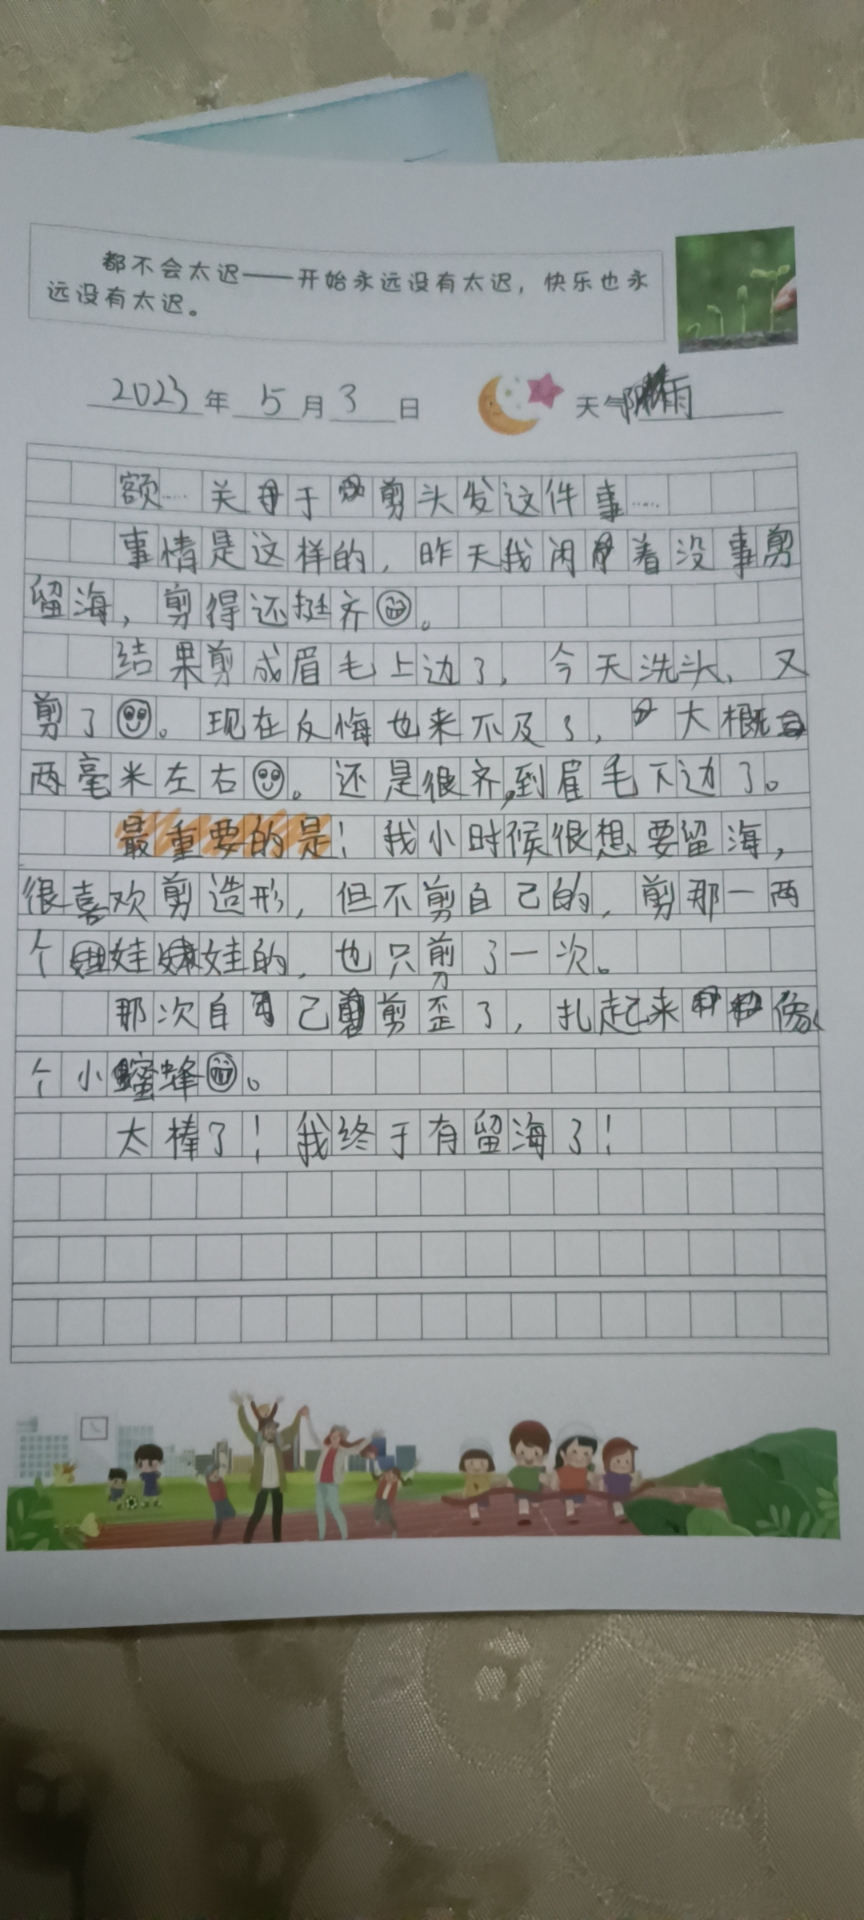 都不会太迟——开始永远没有太迟，快乐也永
远没有太迟。
2023年5月3日 天气 雨
额……关于剪头发这件事……
事情是这样的，昨天我闲着没事剪
留海，剪得还挺齐。
结果剪成眉毛上边了，今天洗头，又
剪了。现在反悔也来不及了，大概
两毫米左右。还是很齐，到眉毛下边了。
最重要的是！我小时候很想要留海，
很喜欢剪造形，但不剪自己的，剪那一两
个娃娃的，也只剪了一次。
那次自己剪歪了，扎起来像
个小蜜蜂。
太棒了！我终于有留海了！